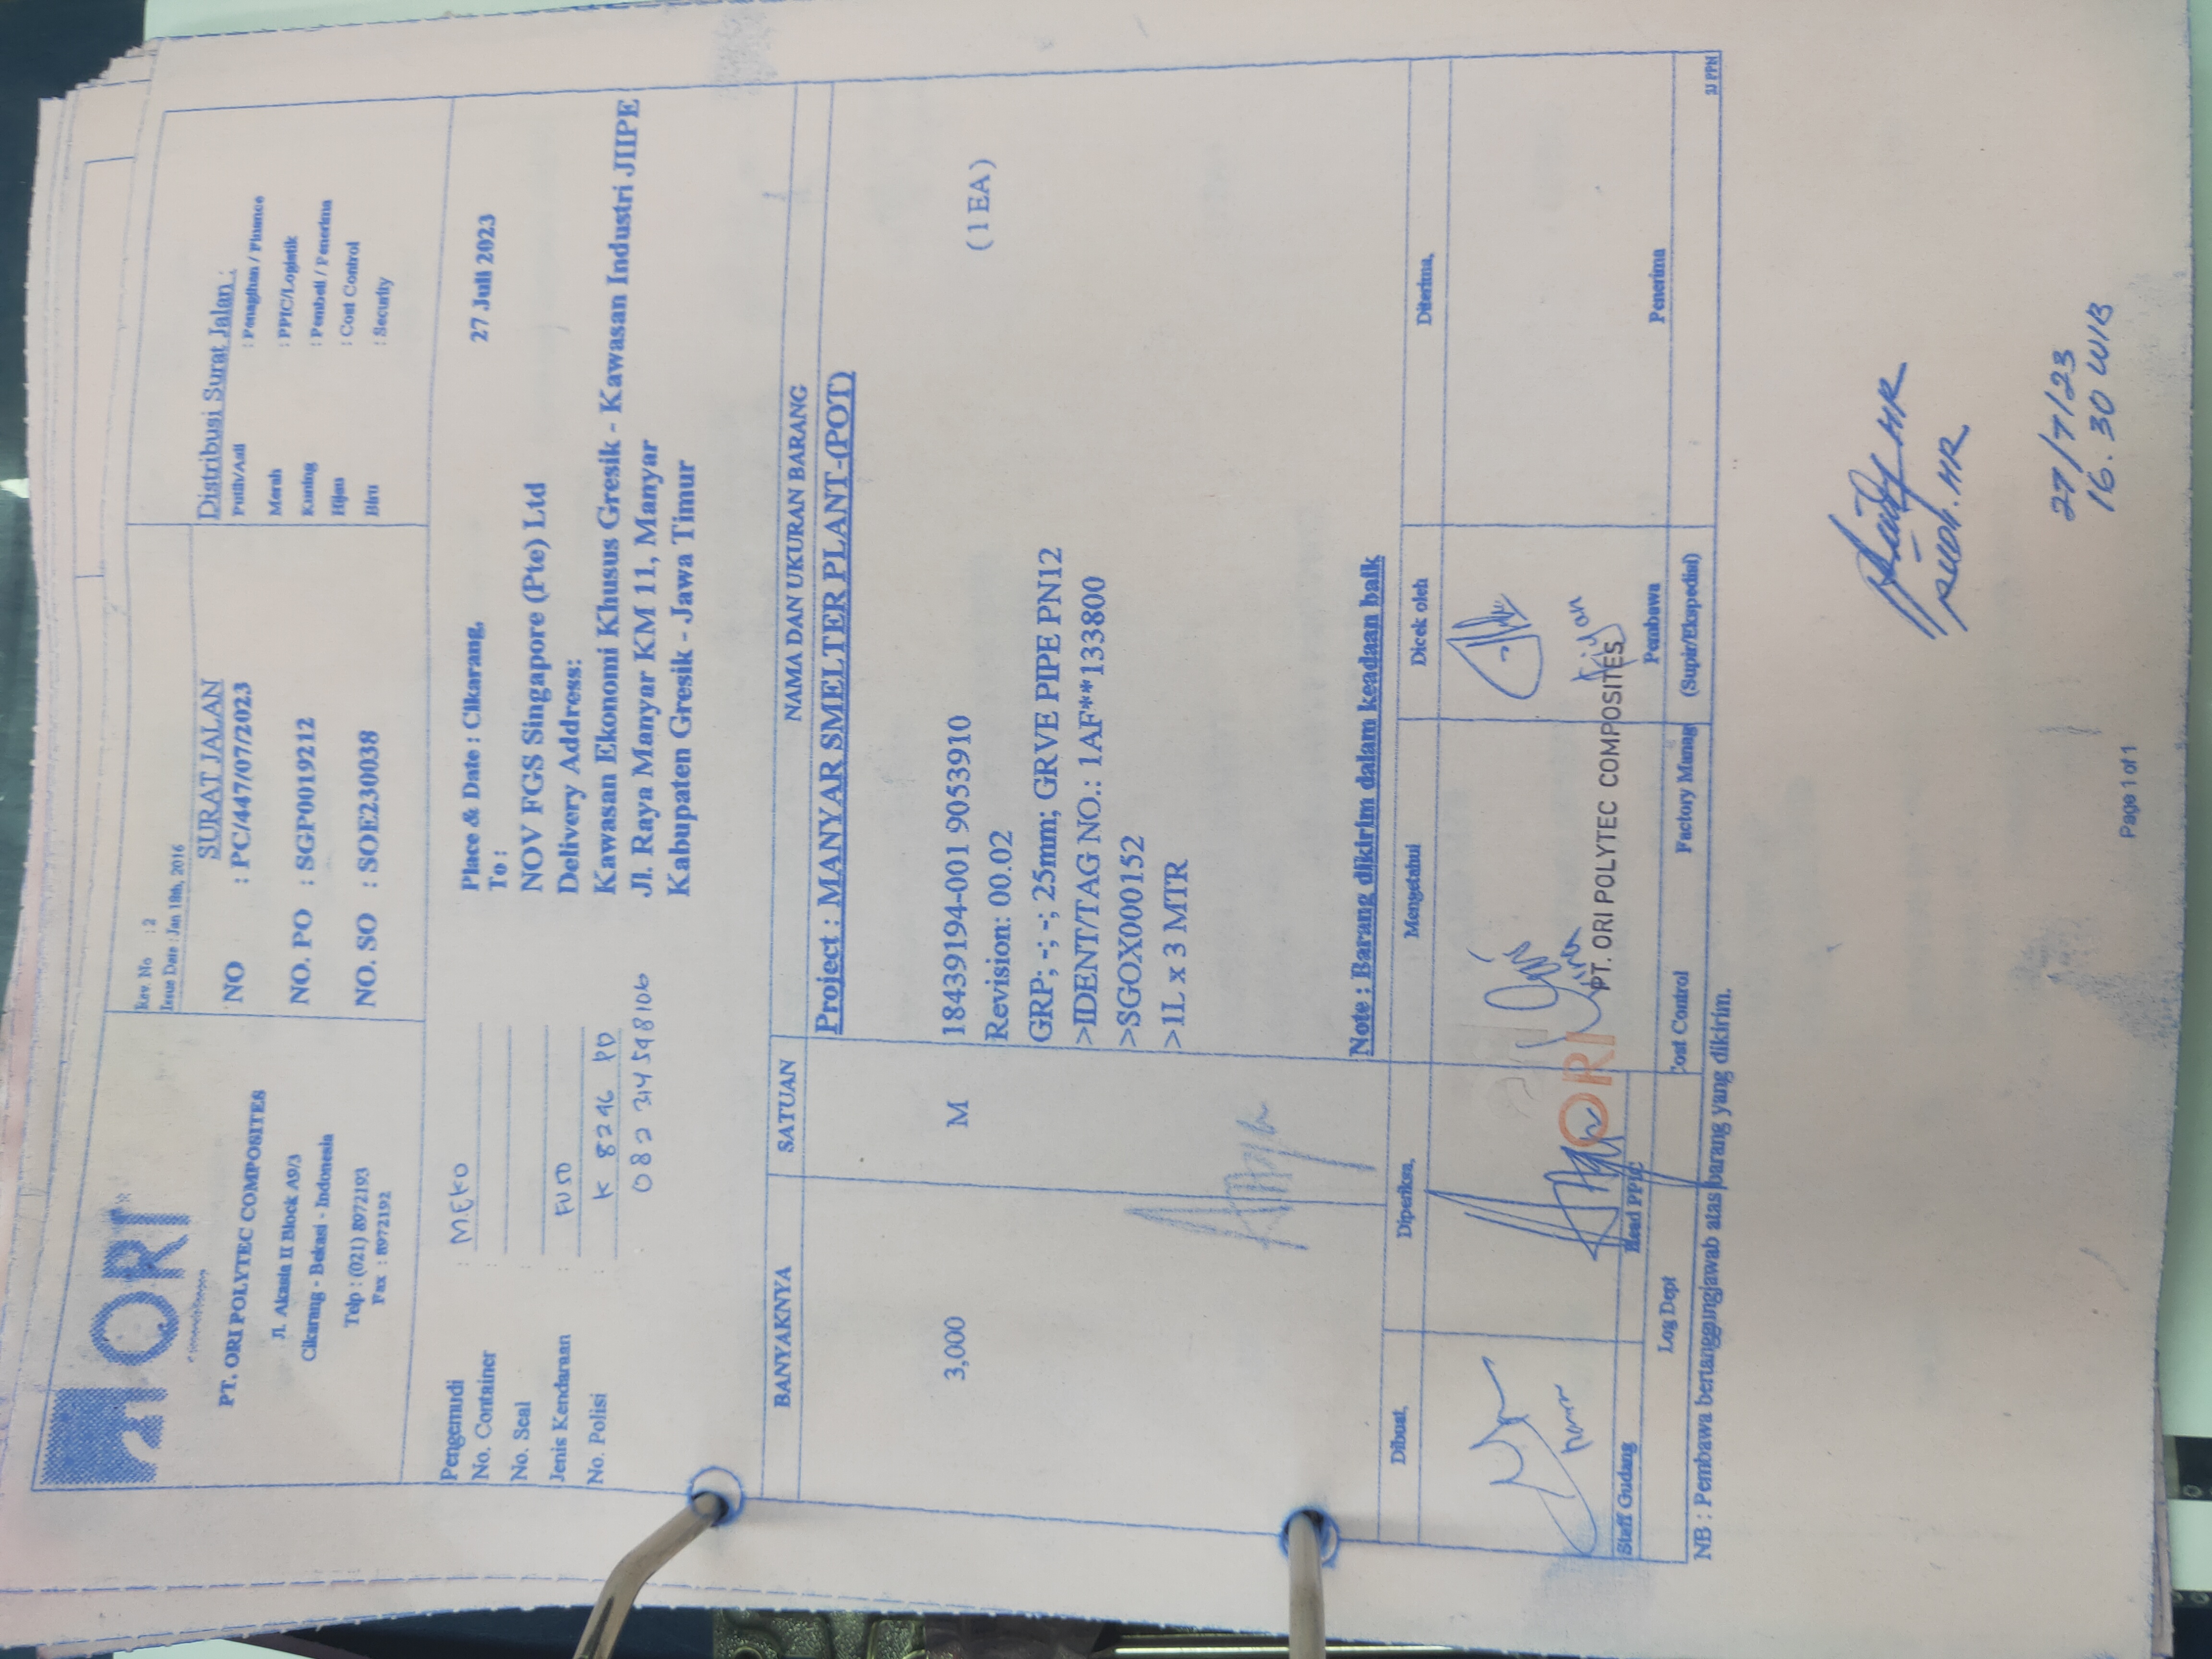 ORI
PT. ORI POLYTEC COMPOSITES
Jl. Akasia II Block A9/3
Cikarang - Bekasi - Indonesia
Telp : (021) 8972193
Fax : 8972192
Rev. No : 2
Issue Date : Jan 18th, 2016
SURAT JALAN
NO : PC/447/07/2023
NO. PO : SGP0019212
NO. SO : SOE230038
Distribusi Surat Jalan :
Putih/Asli : Penagihan / Finance
Merah : PPIC/Logistik
Kuning : Pembeli / Penerima
Hijau : Cost Control
Biru : Security
Pengemudi : M.EKO
No. Container :
No. Seal
Jenis Kendaraan : FUSO
No. Polisi : K 8246 PD
Place & Date : Cikarang, 27 Juli 2023
To :
NOV FGS Singapore (Pte) Ltd
Delivery Address:
Kawasan Ekonomi Khusus Gresik - Kawasan Industri JIIPE
Jl. Raya Manyar KM 11, Manyar
Kabupaten Gresik - Jawa Timur
BANYAKNYA SATUAN NAMA DAN UKURAN BARANG
Project : MANYAR SMELTER PLANT-(POT)
3,000 M 18439194-001 9053910 ( 1 EA )
Revision: 00.02
GRP; -; -; 25mm; GRVE PIPE PN12
>IDENT/TAG NO.: 1AF**133800
>SGOX000152
>1L x 3 MTR
Note : Barang dikirim dalam keadaan baik
Dibuat, Diperiksa, Mengetahui Dicek oleh Diterima,
ORI
PT. ORI POLYTEC COMPOSITES
Staff Gudang Head PPIC Pembawa Penerima
Log Dept Cost Control Factory Manag (Supir/Ekspedisi)
NB : Pembawa bertanggungjawab atas barang yang dikirim.
SJ PPN
27/7/23
16.30 WIB
Page 1 of 1